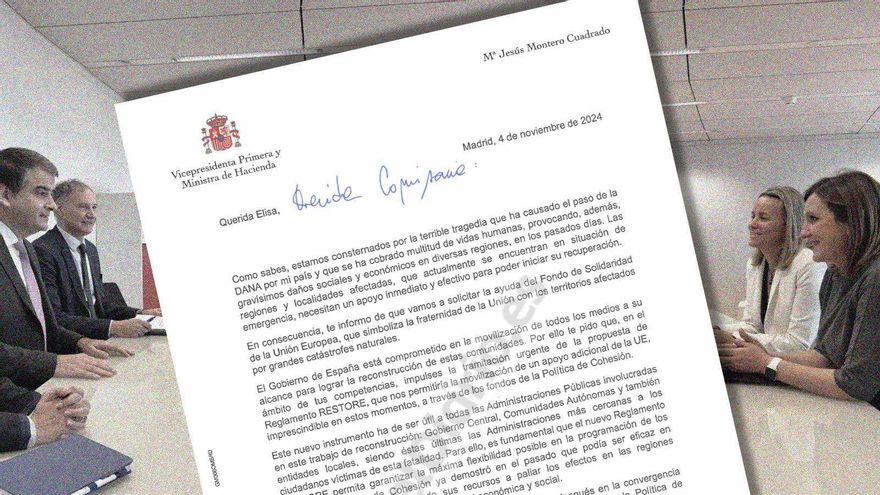 Mª Jesús Montero Cuadrado
Vicepresidenta Primera y
Ministra de Hacienda
Madrid, 4 de noviembre de 2024
Querida Elisa, Querida Comisaria:
Como sabes, estamos consternados por la terrible tragedia que ha causado el paso de la
DANA por mi país y que se ha cobrado multitud de vidas humanas, provocando, además,
gravísimos daños sociales y económicos en diversas regiones, en los pasados días. Las
regiones y localidades afectadas, que actualmente se encuentran en situación de
emergencia, necesitan un apoyo inmediato y efectivo para poder iniciar su recuperación.
En consecuencia, te informo de que vamos a solicitar la ayuda del Fondo de Solidaridad
de la Unión Europea, que simboliza la fraternidad de la Unión con los territorios afectados
por grandes catástrofes naturales.
El Gobierno de España está comprometido en la movilización de todos los medios a su
alcance para lograr la reconstrucción de estas comunidades. Por ello te pido que, en el
ámbito de tus competencias, impulses la tramitación urgente de la propuesta de
Reglamento RESTORE, que nos permitiría la movilización de un apoyo adicional de la UE,
imprescindible en estos momentos, a través de los fondos de la Política de Cohesión.
Este nuevo instrumento ha de ser útil a todas las Administraciones Públicas involucradas
en este trabajo de reconstrucción Gobierno Central, Comunidades Autónomas y también
entidades locales, siendo éstas últimas las Administraciones más cercanas a los
ciudadanos víctimas de esta fatalidad. Para ello, es fundamental que el nuevo Reglamento
permita garantizar la máxima flexibilidad posible en la programación de los
de Cohesión ya demostró en el pasado que podía ser eficaz en
sus recursos a paliar los efectos en las regiones
económica y social.
después en la convergencia
la Política de